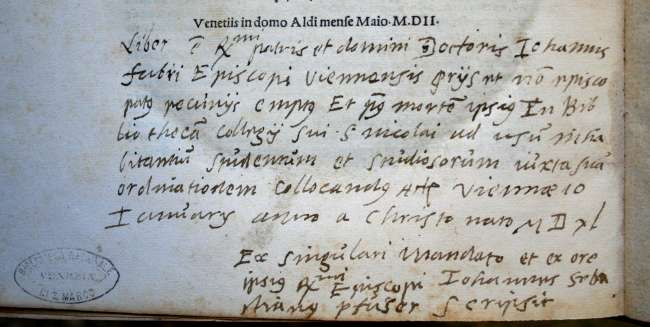 Venetiis in domo Aldi mense Maio. M.DII.
Liber ē R^mi patris et domini D Doctoris Iohannis
Fabri Episcopi Viennensis ꝓprijs et nō episco
patꝰ pecunijs emptꝰ Et pꝰ mortē ipsiꝰ In Bib
liothecā Collegij sui S nicolai ad usū inha
bitantiū studentum et studiosorum iuxta suā
ordinationem Collocandꝰ Viennae 10
Ianuarij anno a Christo nato MDxl
Ex singulari mandato et ex ore
ipsiꝰ R^mi Episcopi Iohannes Seba
stianꝰ pfuser Scripsit
VENEZIA
DI S. MARCO